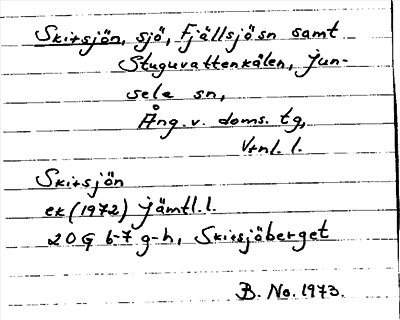 Skirsjön, sjö, Fjällsjö sn samt
Stuguvattenkälen, Jun-
sele sn,
Ång. v. doms. tg,
Vrnl. l.
Skirsjön
ek (1972) Jämtl. l.
20G 6-7 g-h, Skirsjöberget
B. No. 1973.